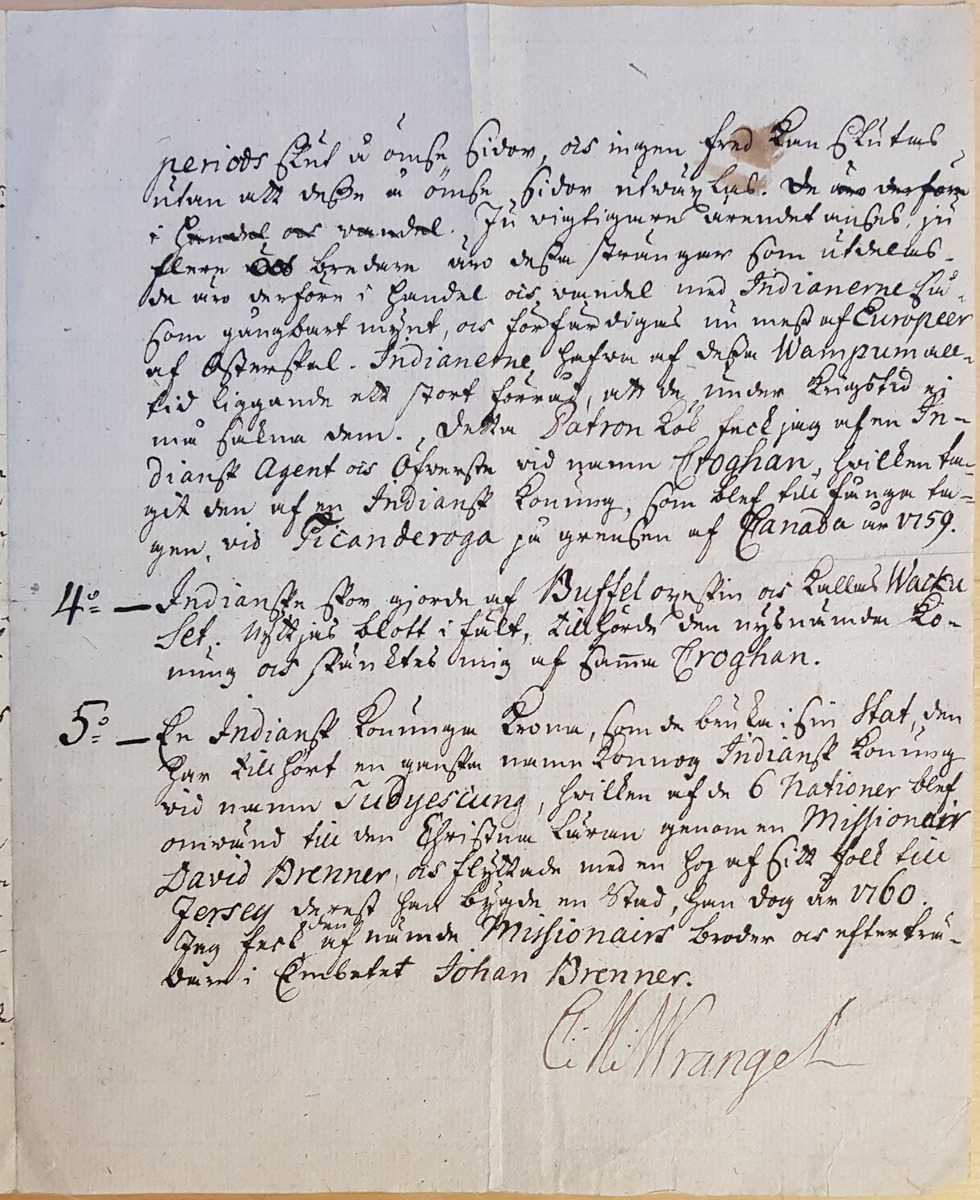 periods slut å ömse sidor, och ingen fred kan slutas
utan att desse å ömse sidor utwäxlas. De äro derföre
i handel och wandel. Ju wigtigare ärendet anses, ju
flere och bredare äro dessa strängar som utdelas.
de äro derföre i handel och wandel med Indianerne så-
som gångbart mynt, och förfärdigas nu mest af Europeer
af Osterskal. Indianerne hafwa af dessa Wampum all-
tid liggande ett stort förråd, att de under krigstid ej
må sakna dem. Detta Patron Kök feck jag af en In-
diansk Agent och Öfwerste vid namn Croghan, hvilken ta-
git den af en Indiansk konung, som blef till fånga ta-
gen, vid Ticanderoga på grensen af Canada år 1759.
4:o — Indianske skor gjorde af Buffel oxeskin och kallas Wacku
Sef. Nyttjas blott i fält, tillhörde den nysnämde Ko-
nung och skänktes mig af samma Croghan.
5:o — En Indiansk Konunga Krona, som de bruka i sin Stat, den
har tillhört en ganska namnkonnog Indiansk konung
vid namn Tudyesciung, hvilken af de 6 Nationer blef
omwänd till den Christna läran genom en Missionair
David Brenner, och flyttade med en hop af sitt folk till
Jersey derest han bygde en Stad, han dog år 1760.
Jag feck den af nämde Missionairs broder och efterträ-
dare i Embetet Johan Brenner.
C: M: Wrangel